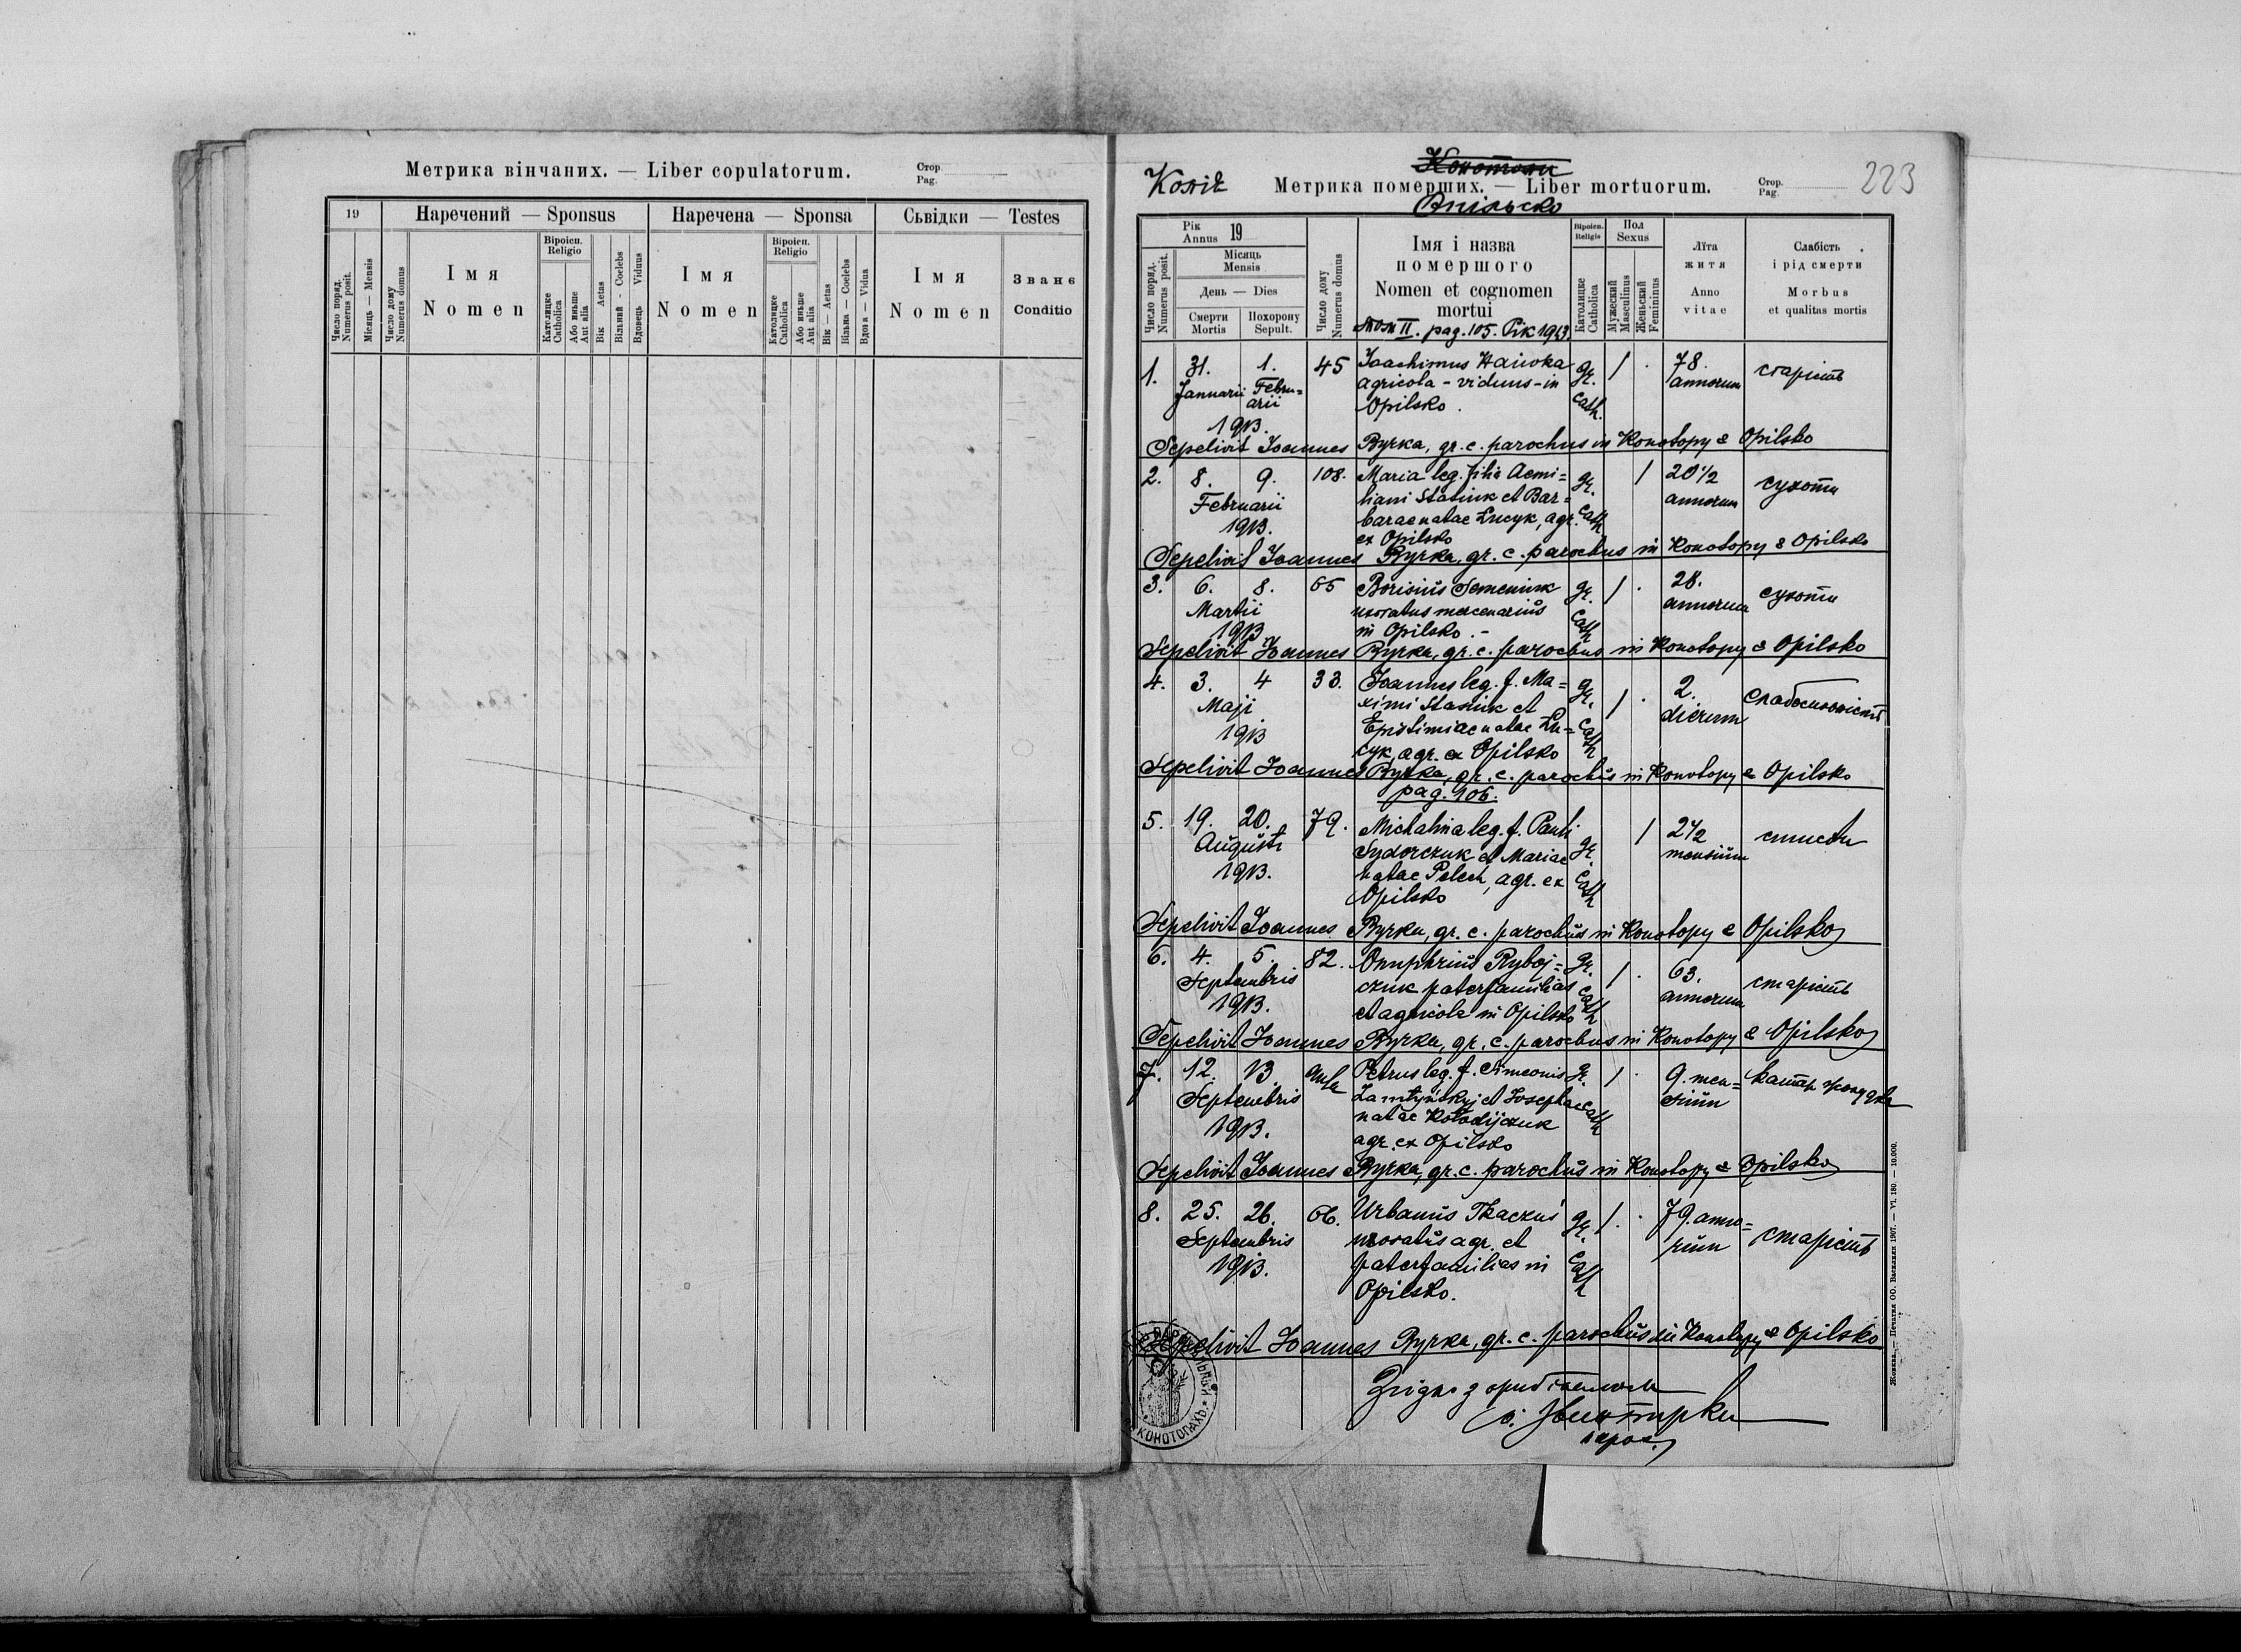 Метрика вінчаних. — Liber copulatorum.
Стор.
Pag.
19
Наречений — Sponsus
Наречена — Sponsa
Сьвідки — Testes
Число поряд.
Numerus posit.
Місяць — Mensis
Число дому
Numerus domus
Імя
Nomen
Віроісп.
Religio
Католицке
Catholica
Або иньше
Aut alia
Вік Aetas
Вільний - Coelebs
Вдовець Viduus
Імя
Nomen
Віроісп.
Religio
Католицке
Catholica
Або иньше
Aut alia
Вік — Aetas
Вільна — Coelebs
Вдова — Vidua
Імя
Nomen
Званє
Conditio
Конотопи
Копія
Метрика померших. — Liber mortuorum.
Опільско
Стор.
Pag.
223
Рік
Annus 19
Число поряд.
Numerus posit.
Місяць
Mensis
День — Dies
Смерти
Mortis
Похорону
Sepult.
Число дому
Numerus domus
Імя і назва
помершого
Nomen et cognomen
mortui
Том II. pag. 105. Рік 1913.
Віроісп.
Religio
Католицке
Catholica
Пол
Sexus
Мужеский
Masculinus
Женьский
Femininus
Лїта
житя
Anno
vitae
Слабість
і рід смерти
Morbus
et qualitas mortis
1. 31. 1. 45 Joachimus gr. 1 . 78. старість
Januarii Febru= agricola - viduus - in cath. annorum
arii Opilsko.
1913.
Sepelivit Joannes Byrka, gr. c. parochus in Konotopy & Opilsko
2. 8. 9. 108. Maria leg. filia Aemi= gr. 1 20 1/2 сухоти
Februarii liani Stasiuk et Bar= cath annorum
1913. barae natae Lucyk, agr.
ex Opilsko
Sepelivit Joannes Byrka, gr. c. parochus in Konotopy & Opilsko
3. 6. 8. 65 Borisius Semeniuk gr. 1 . 28. сухоти
Martii uxoratus mercenarius cath annorum
1913 in Opilsko. -
Sepelivit Joannes Byrka, gr. c. parochus in Konotopy & Opilsko
4. 3. 4 33. Joannes leg. f. Ma= gr. 1 . 2. слабосильність
Maji ximi Stasiuk et cath dierum
1913 Epistimiae natae Lu=
cyk, agr. ex Opilsko
Sepelivit Joannes Byrka, gr. c. parochus in Konotopy & Opilsko
pag. 106.
5. 19. 20. 79. Michalina leg. f. Pauli gr. 1 2 1/2
Augusti Sydorczuk et Mariae cath mensium
1913. natae Pelech, agr. ex
Opilsko
Sepelivit Joannes Byrka, gr. c. parochus in Konotopy & Opilsko
6. 4. 5. 82. Onuphrius Ryboj= gr. 1 . 63. старість
Septembris czuk paterfamilias cath annorum
1913. et agricola in Opilsko
Sepelivit Joannes Byrka, gr. c. parochus in Konotopy & Opilsko
7. 12. 13. aula Petrus leg. f. Simeonis gr. 1 . 9. men= катар жолудка
Septembris et Josephae cath sium
1913. natae Kołodijczuk
agr. ex Opilsko
Sepelivit Joannes Byrka, gr. c. parochus in Konotopy & Opilsko
8. 25. 26. 66. Urbanus Tkaczuś gr. 1 . 79. anno= старість
Septembris uxoratus agr. et cath rum
1913. paterfamilias in
Opilsko.
Sepelivit Joannes Byrka, gr. c. parochus in Konotopy & Opilsko
КОНОТОПАХЪ.
Жовква. — Печатня ОО. Василиян 1907. — VI. 180. — 10.000.